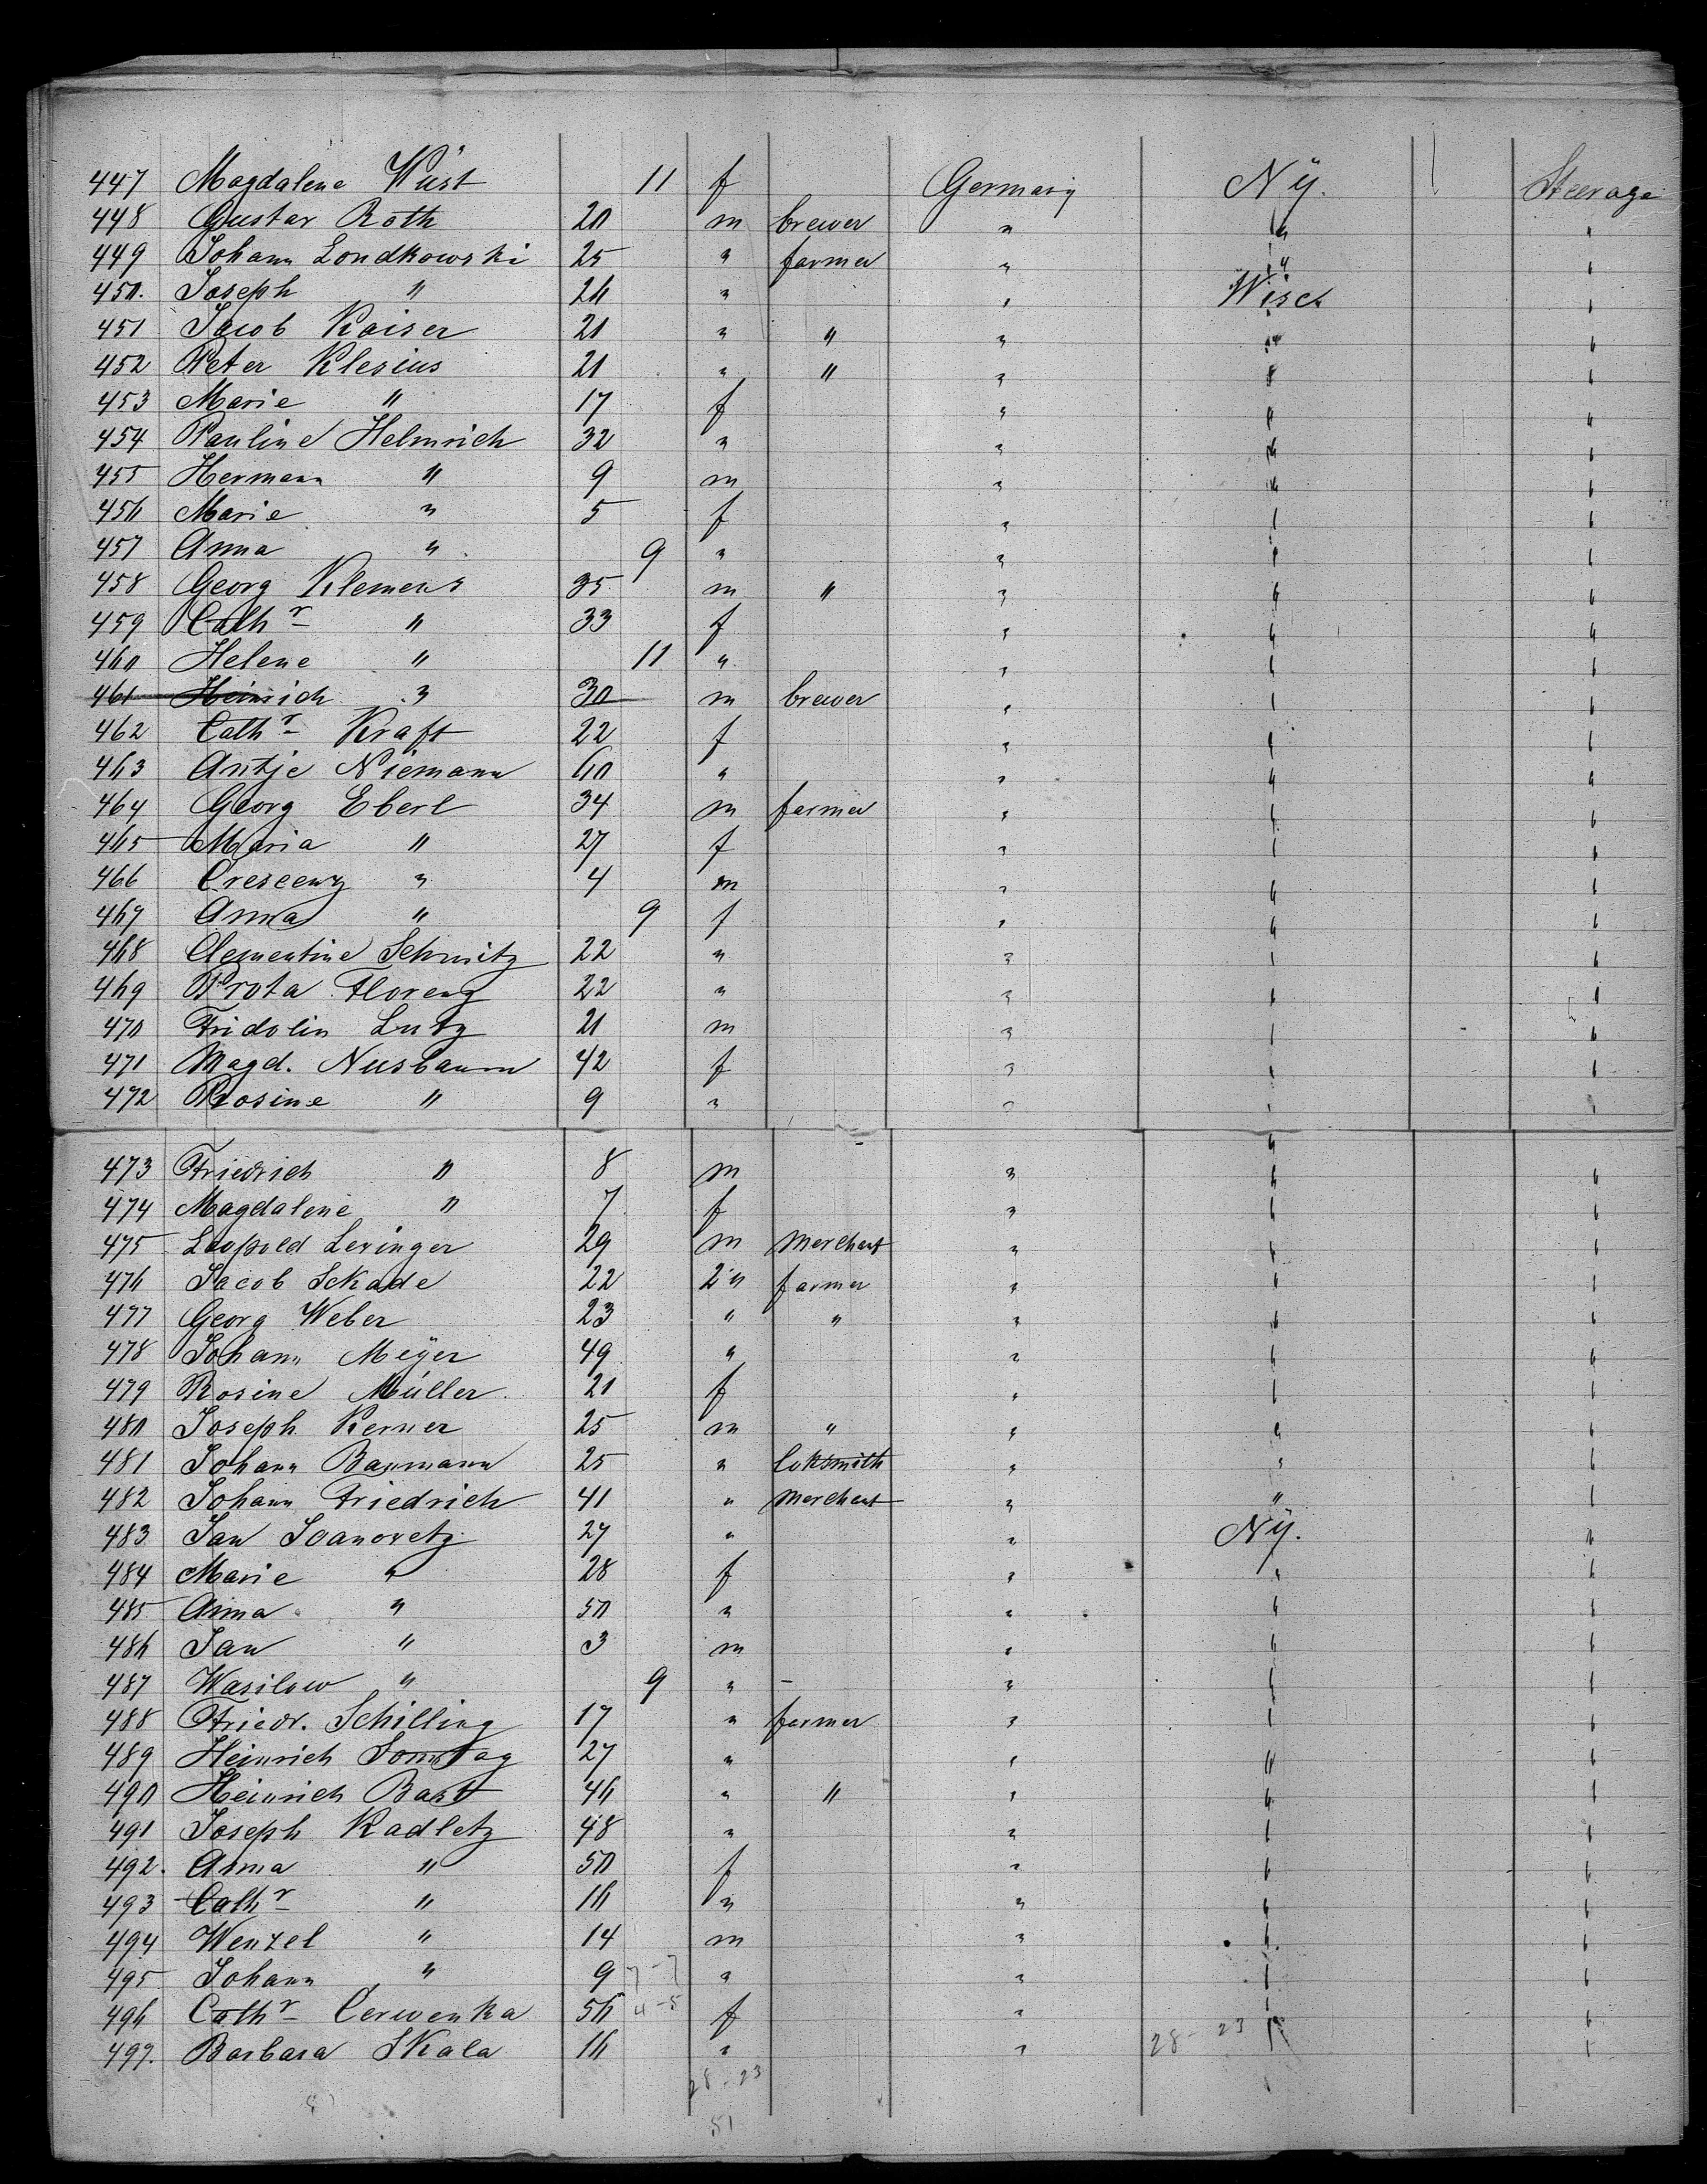 447 Magdalene Wüst 11 f Germany Nÿ. Steerage
448 Gustav Roth 20 m brewer " " "
449 Johann Londkowski 25 " farmer " " "
450. Joseph " 26 " " Wisc. "
451 Jacob Kaiser 21 " " " " "
452 Peter Klesius 21 " " " " "
453 Marie " 17 f " " "
454 Pauline Helmrich 32 " " " "
455 Hermann " 9 m " " "
456 Marie " 5 f " " "
457 Anna " 9 " " " "
458 Georg Klemens 35 m " " " "
459 Cathr " 33 f " " "
460 Helene " 11 " " " "
461 Heinrich " 30 m brewer " " "
462 Cathr Kraft 22 f " " "
463 Antje Niemann 60 " " " "
464 Georg Eberl 34 m farmer " " "
465 Maria " 27 f " " "
466 Crescenz " 4 m " " "
467 Anna " 9 f " " "
468 Clementine Schmitz 22 " " " "
469 Prota Florenz 22 " " " "
470 Fridolin Lutz 21 m " " "
471 Magd. Nusbaum 42 f " " "
472 Rosine " 9 " " " "
473 Friedrich " 8 m " " "
474 Magdalene " 7 f " " "
475 Leopold Levinger 29 m merchant " " "
476 Jacob Skade 22 " farmer " " "
477 Georg Weber 23 " " " " "
478 Johann Meÿer 49 " " " "
479 Rosine Müller 21 f " " "
480 Joseph Kerner 25 m " " " "
481 Johann Baumann 25 " loksmith " " "
482 Johann Friedrich 41 " merchant " " "
483 Jan Ivanovetz 27 " " Nÿ. "
484 Marie " 28 f " " "
485 Anna " 50 " " " "
486 Jan " 3 m " " "
487 Wasilow " 9 " - " " "
488 Friedr. Schilling 17 " farmer " " "
489 Heinrich Sonntag 27 " " " "
490 Heinrich Bast 46 " " " " "
491 Joseph Kadletz 48 " " " "
492. Anna " 50 f " " "
493 Cathr " 16 " " " "
494 Wenzel " 14 m " " "
495 Johann " 9 7-7 " " " "
496 Cathr Cerwenka 56 4-5 f " " "
497. Barbara Skala 16 " " 28-23 " "
28-23
51